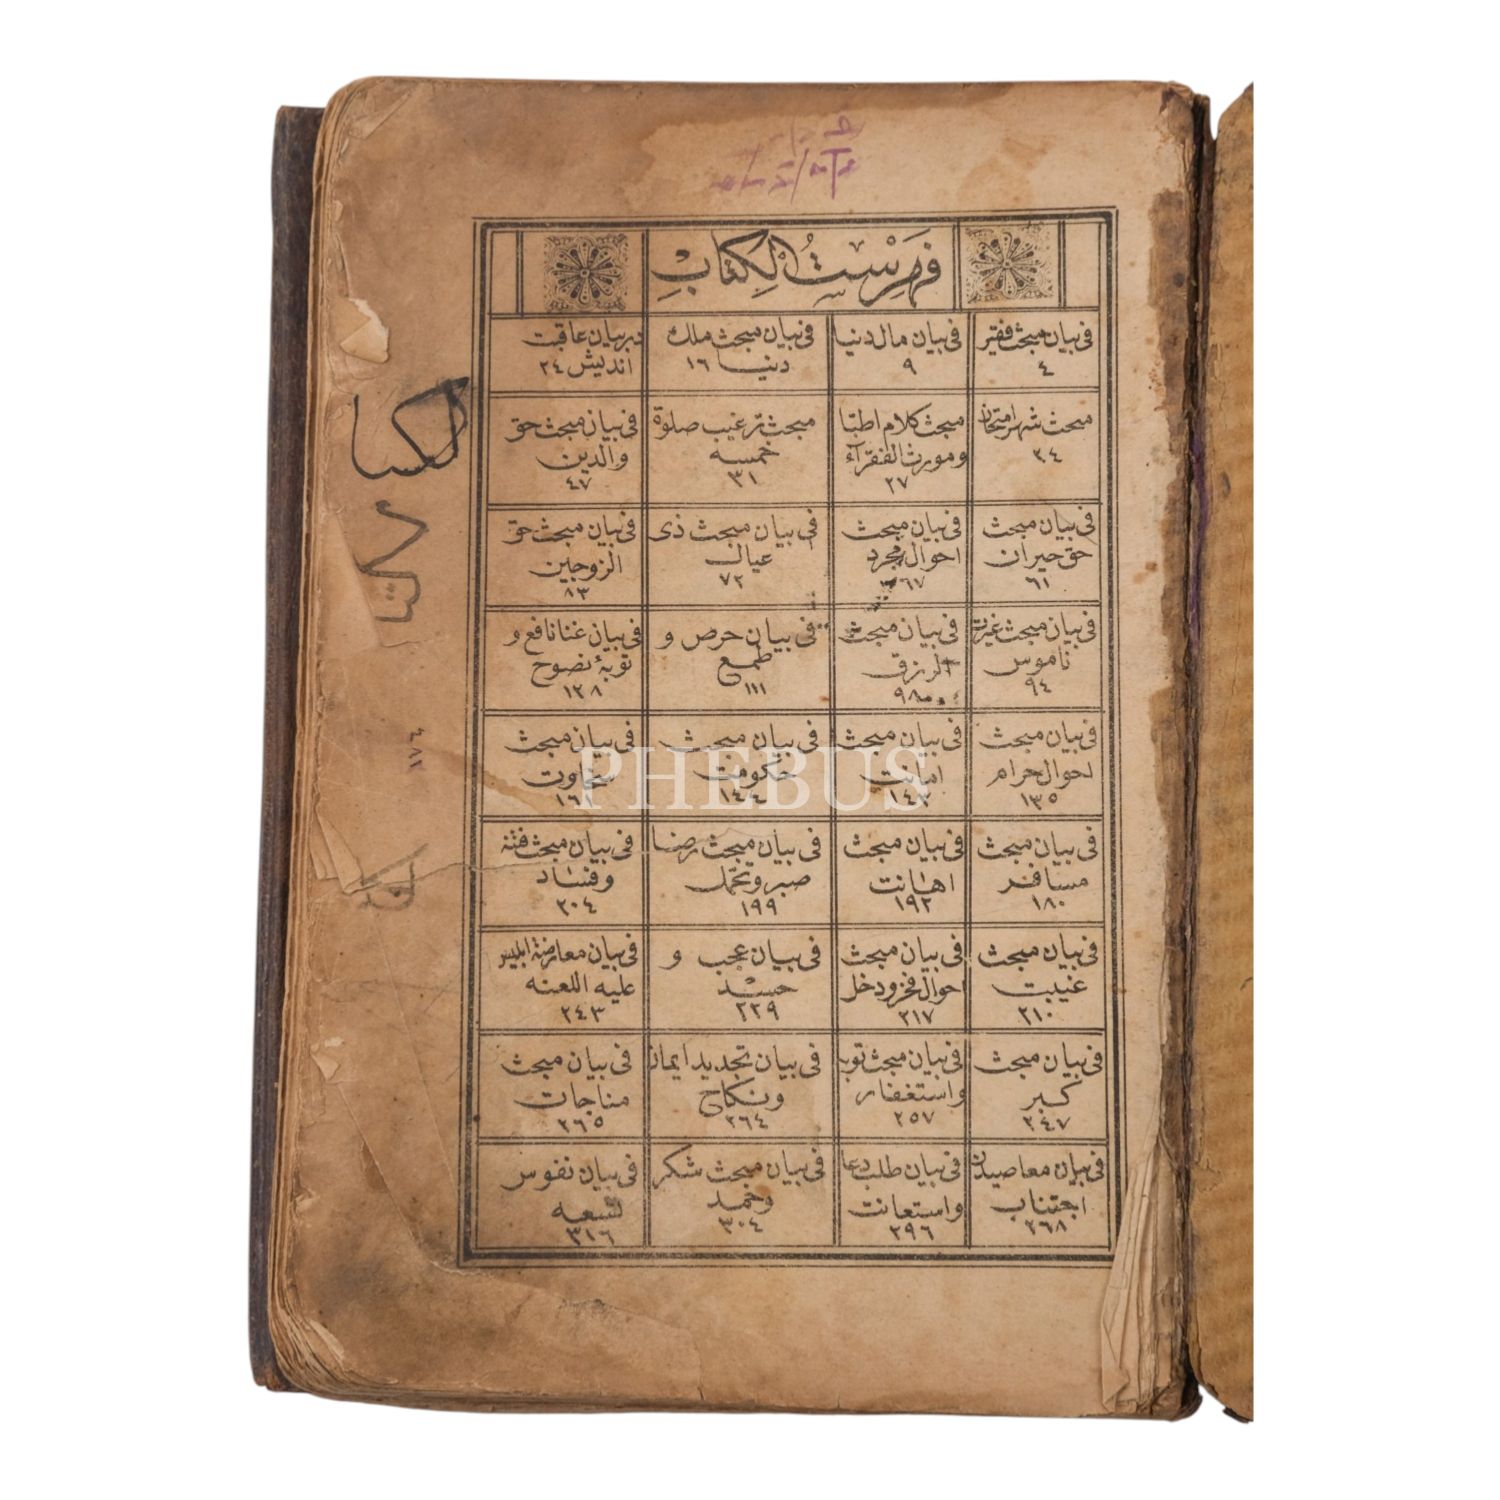 فهرست الكتاب
فی بیان مبحث فقیر
٤
فی بیان مال دنیا
٩
فی بیان مبحث ملك
دنیا ١٦
در بیان عاقبت
اندیش ٢٤
مبحث شهر امتحان
٢٤
مبحث كلام اطبا
و مورث الفقر آء
٢٧
مبحث ترغیب صلوة
خمسه
٣١
فی بیان مبحث حق
والدین
٤٧
فی بیان مبحث
حق حیران
٦١
فی بیان مبحث
احوال مجرد
٦٧
فی بیان مبحث ذی
عیال
٧٢
فی بیان مبحث حق
الزوجین
٨٣
فی بیان مبحث غیرت
ناموس
٩٤
فی بیان مبحث
الرزق
٩٨
فی بیان حرص و
طمع
١١١
فی بیان غنا نافع و
توبهٔ نصوح
١٢٨
فی بیان مبحث
احوال حرام
١٣٥
فی بیان مبحث
امانت
١٤٣
فی بیان مبحث
حكومت
١٤٤
فی بیان مبحث
سخاوت
فی بیان مبحث
مسافر
١٨٠
فی بیان مبحث
اهانت
١٩٢
فی بیان مبحث رضا
صبر و تحمّل
١٩٩
فی بیان مبحث فتنه
و فساد
٢٠٤
فی بیان مبحث
غیبت
٢١٠
فی بیان مبحث
احوال فخر و دخل
٢١٧
فی بیان عجب و
حسد
٢٢٩
فی بیان معارضهٔ ابلیس
علیه اللعنه
٢٤٣
فی بیان مبحث
كبر
٢٤٧
فی بیان مبحث توبه
و استغفار
٢٥٧
فی بیان تجدید ایمان
و نكاح
٢٦٤
فی بیان مبحث
مناجات
٢٦٥
فی بیان معاصیدن
اجتناب
٢٦٨
فی بیان طلب دعا
و استعانت
٢٩٦
فی بیان مبحث شكر
و حمد
٣٠٤
فی بیان نفوس
تسعه
٣١٦
PHEBUS